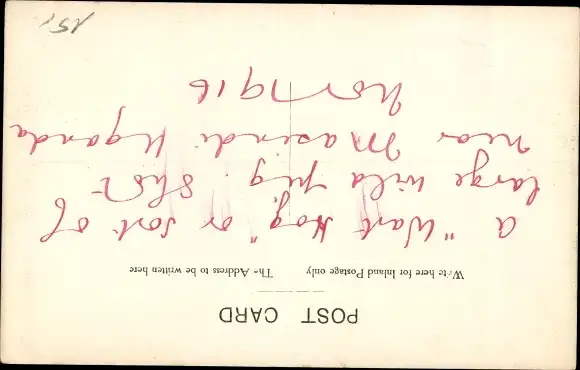 POST CARD
Write here for Inland Postage only The Address to be written here
A "Wart Hog" or sort of
large wild pig. Shot
near Masendi Uganda
Nov 1916
15/